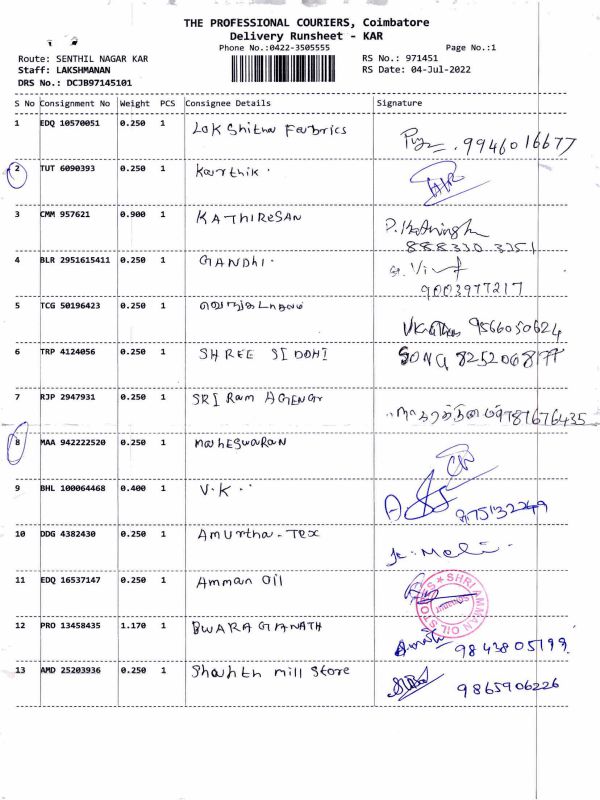 THE PROFESSIONAL COURIERS, Coimbatore
Delivery Runsheet - KAR
Phone No.:0422-3505555
Page No.:1
Route: SENTHIL NAGAR KAR
RS No.: 971451
Staff: LAKSHMANAN
RS Date: 04-Jul-2022
DRS No.: DCJB97145101
S No Consignment No Weight PCS Consignee Details Signature
1 EDQ 10570051 0.250 1 Lakshitha Fabrics
9946016677
2 TUT 6090393 0.250 1 Karthik.
3 CMM 957621 0.900 1 KATHIRESAN
888330 3351
4 BLR 2951615411 0.250 1 GANDHI.
9003977217
5 TCG 50196423 0.250 1 வெங்கடாசலம்
9566050624
6 TRP 4124056 0.250 1 SHREE SIDDHI SONA 8252068177
7 RJP 2947931 0.250 1 SRI Ram AGENCY
9787676435
8 MAA 942222520 0.250 1 maheswaran
9 BHL 100064468 0.400 1 V.K..
10 DDG 4382430 0.250 1 Amurtha-Tex
11 EDQ 16537147 0.250 1 Amman Oil
SHRI AMMAN OIL STORES
12 PRO 13458435 1.170 1 DWARAGANATH
13 AMD 25203936 0.250 1 Shanthi mill Store
9865906226